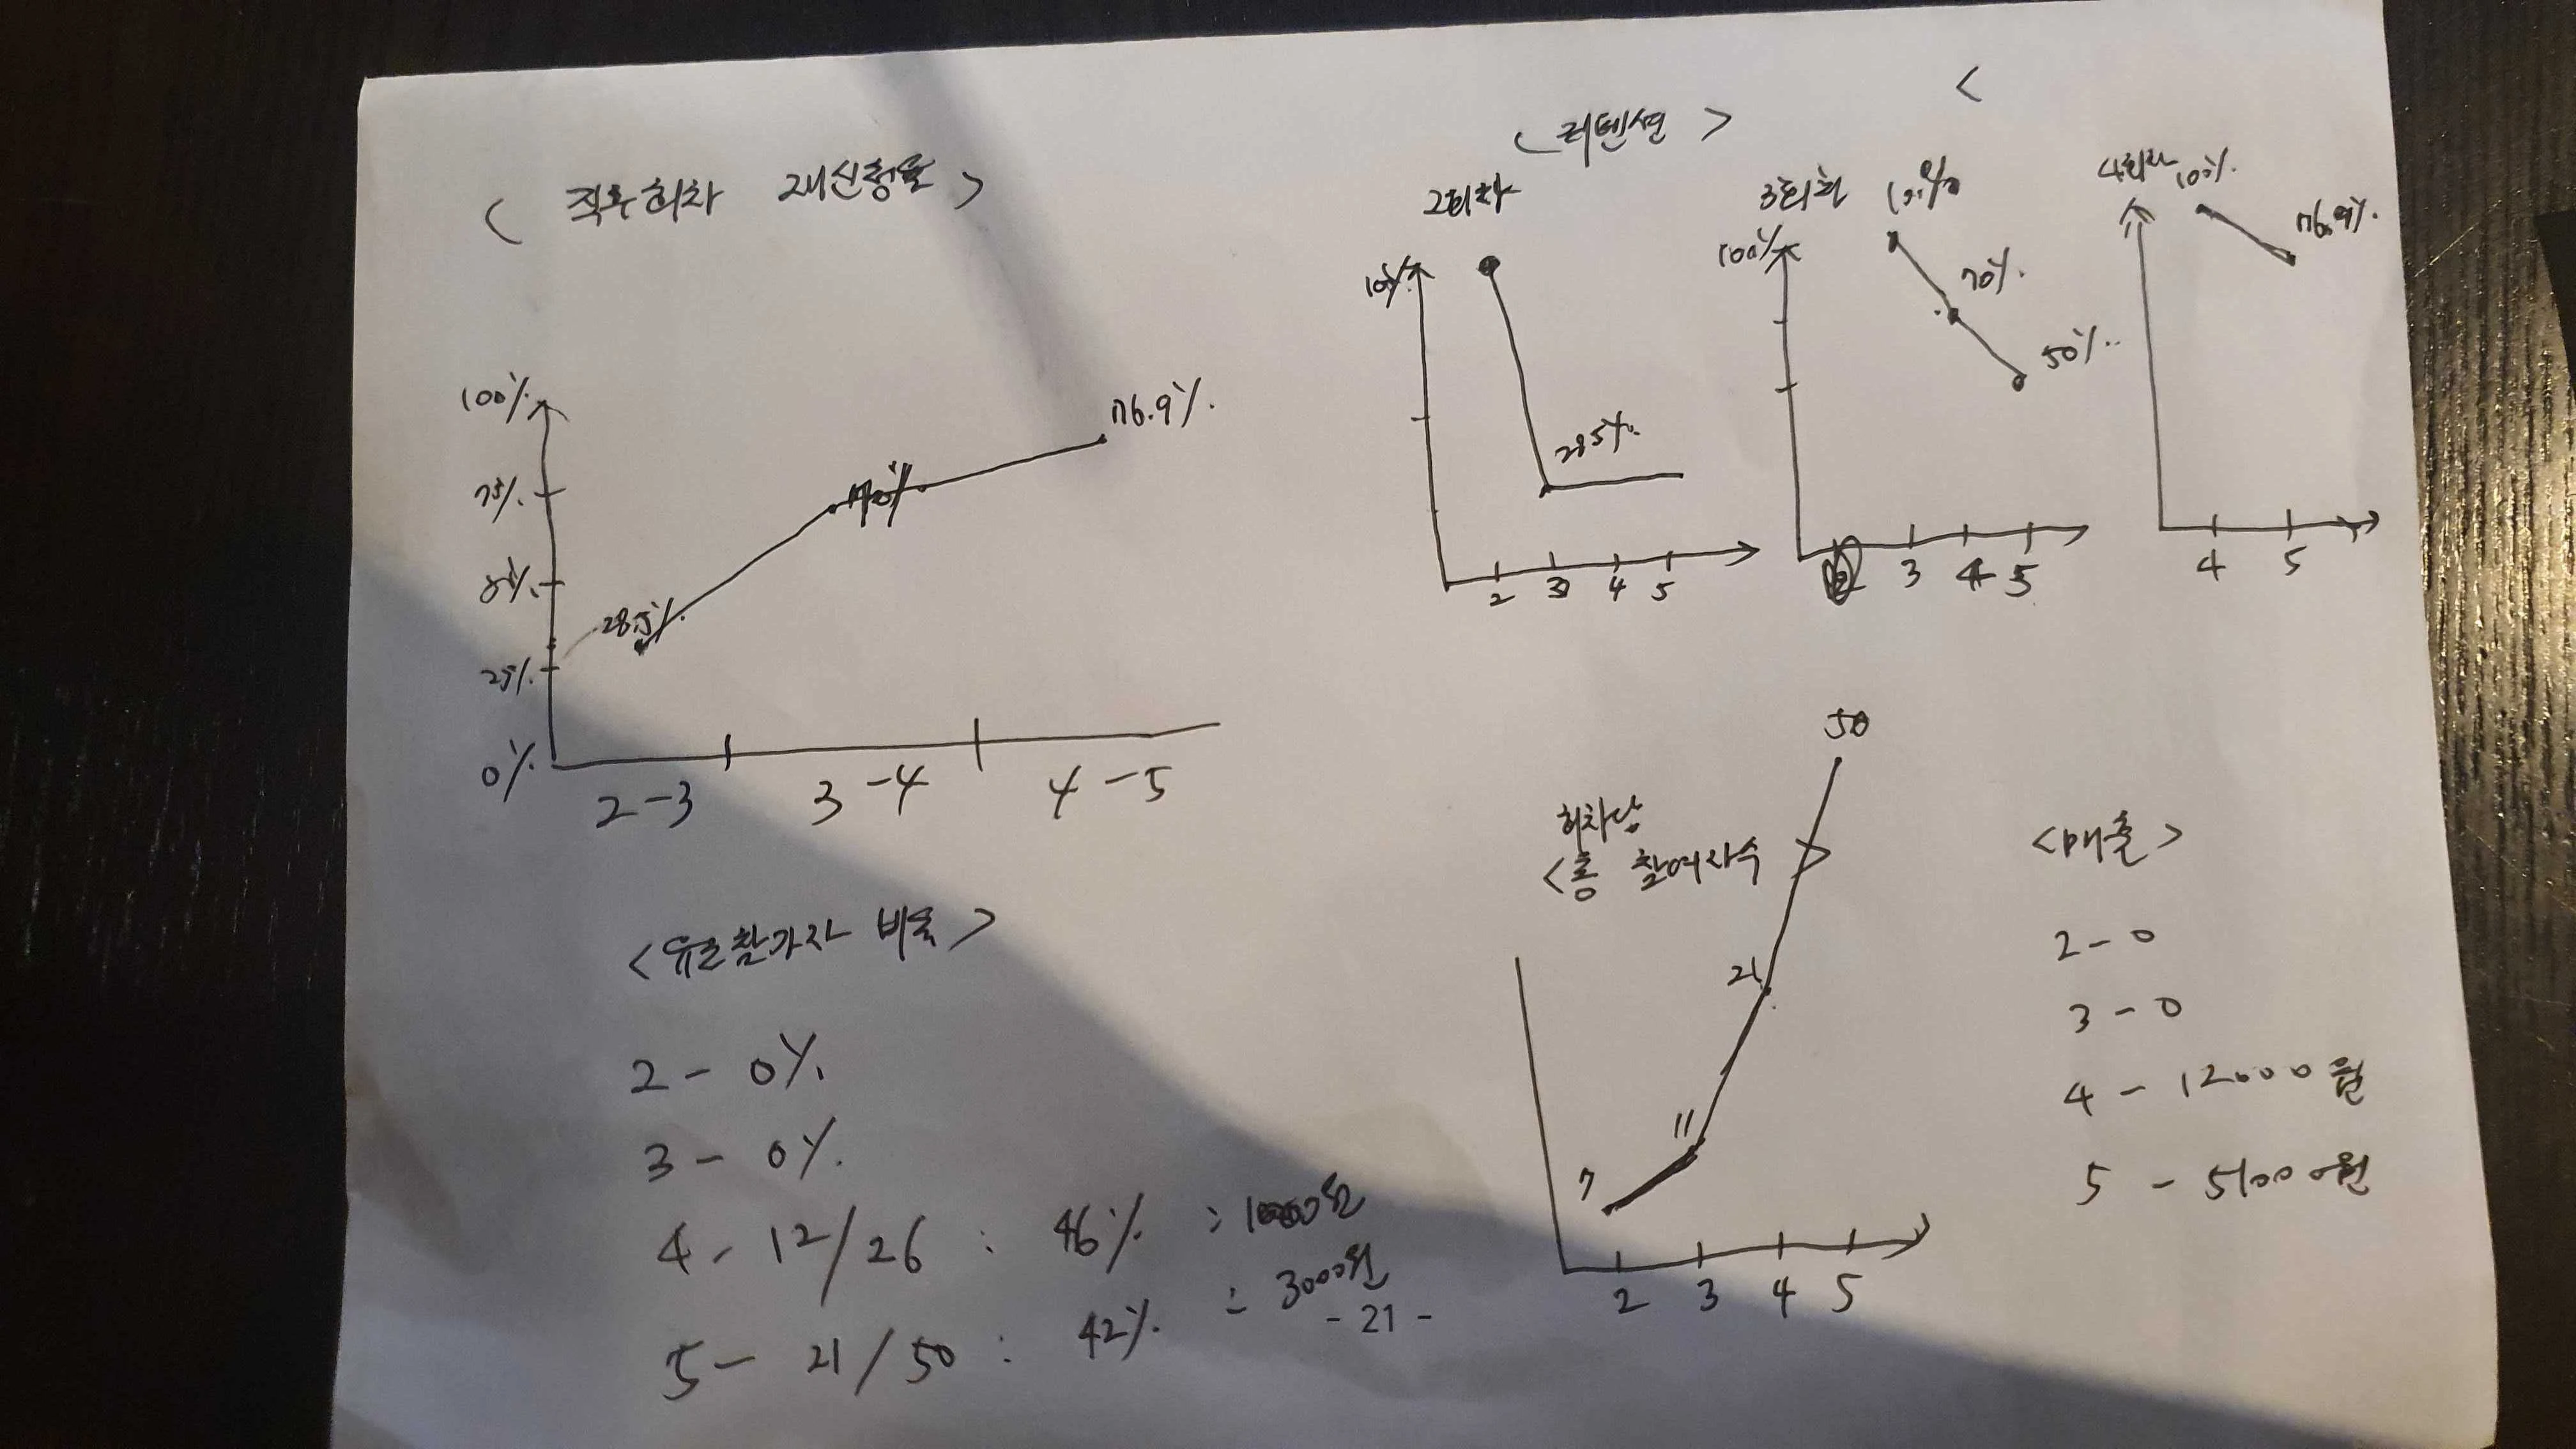 < 직후회차 재신청율 >
100%
75%
50%
25%
0%
28.5%
76.9%
2-3
3-4
4-5
< 리텐션 >
<
2회차
100%
28.5%
2
3
4
5
3회차
100%
100%
70%
50%
3
4
5
4회차
100%
76.9%
4
5
<유료참가자 비율>
2 - 0%
3 - 0%
4 - 12/26 : 46% : 1000원
5 - 21/50 : 42% : 3000원
- 21 -
회차당
<총 참여자수>
7
11
21
50
2
3
4
5
<매출>
2 - 0
3 - 0
4 - 12000원
5 - 51000원